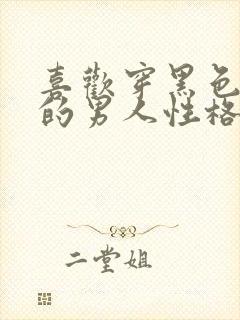 喜歡穿黑色
的男人性格
二堂姐